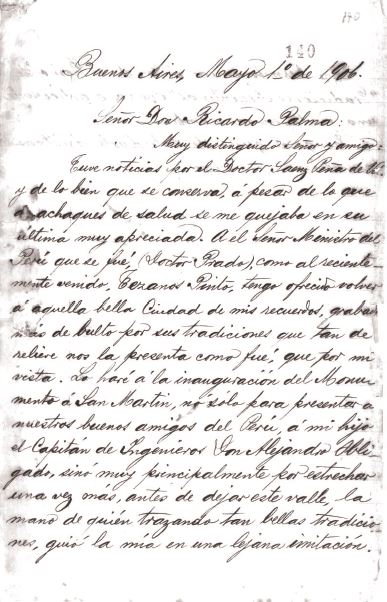 140
140
Buenos Aires, Mayo 1º de 1906.
Señor Don Ricardo Palma:
Muy distinguido Señor y amigo:
Tuve noticias por el Doctor Saenz Peña de
y de lo bien que se conserva, á pesar de lo que
de achaques de salud se me quejaba en su
última muy apreciada. A el Señor Ministro del
Perú que se fué, (Doctor Prado), como al reciente-
mente venido, Pinto, tengo ofrecido volver
á aquella bella Ciudad de mis recuerdos, graba
más de bulto por sus tradiciones que tan de
relieve nos la presenta como fué, que por mi
vista. Lo haré á la inauguración del Monu-
mento á San Martín, nó sólo para presentar a
nuestros buenos amigos del Perú, á mi hijo
el Capitán de Ingenieros Don Alejandro Obli-
gado, sinó muy principalmente por estrechar
una vez más, antes de dejar este valle, la
mano de quién trazando tan bellas tradicio-
nes, guió la mía en una lejana imitación.